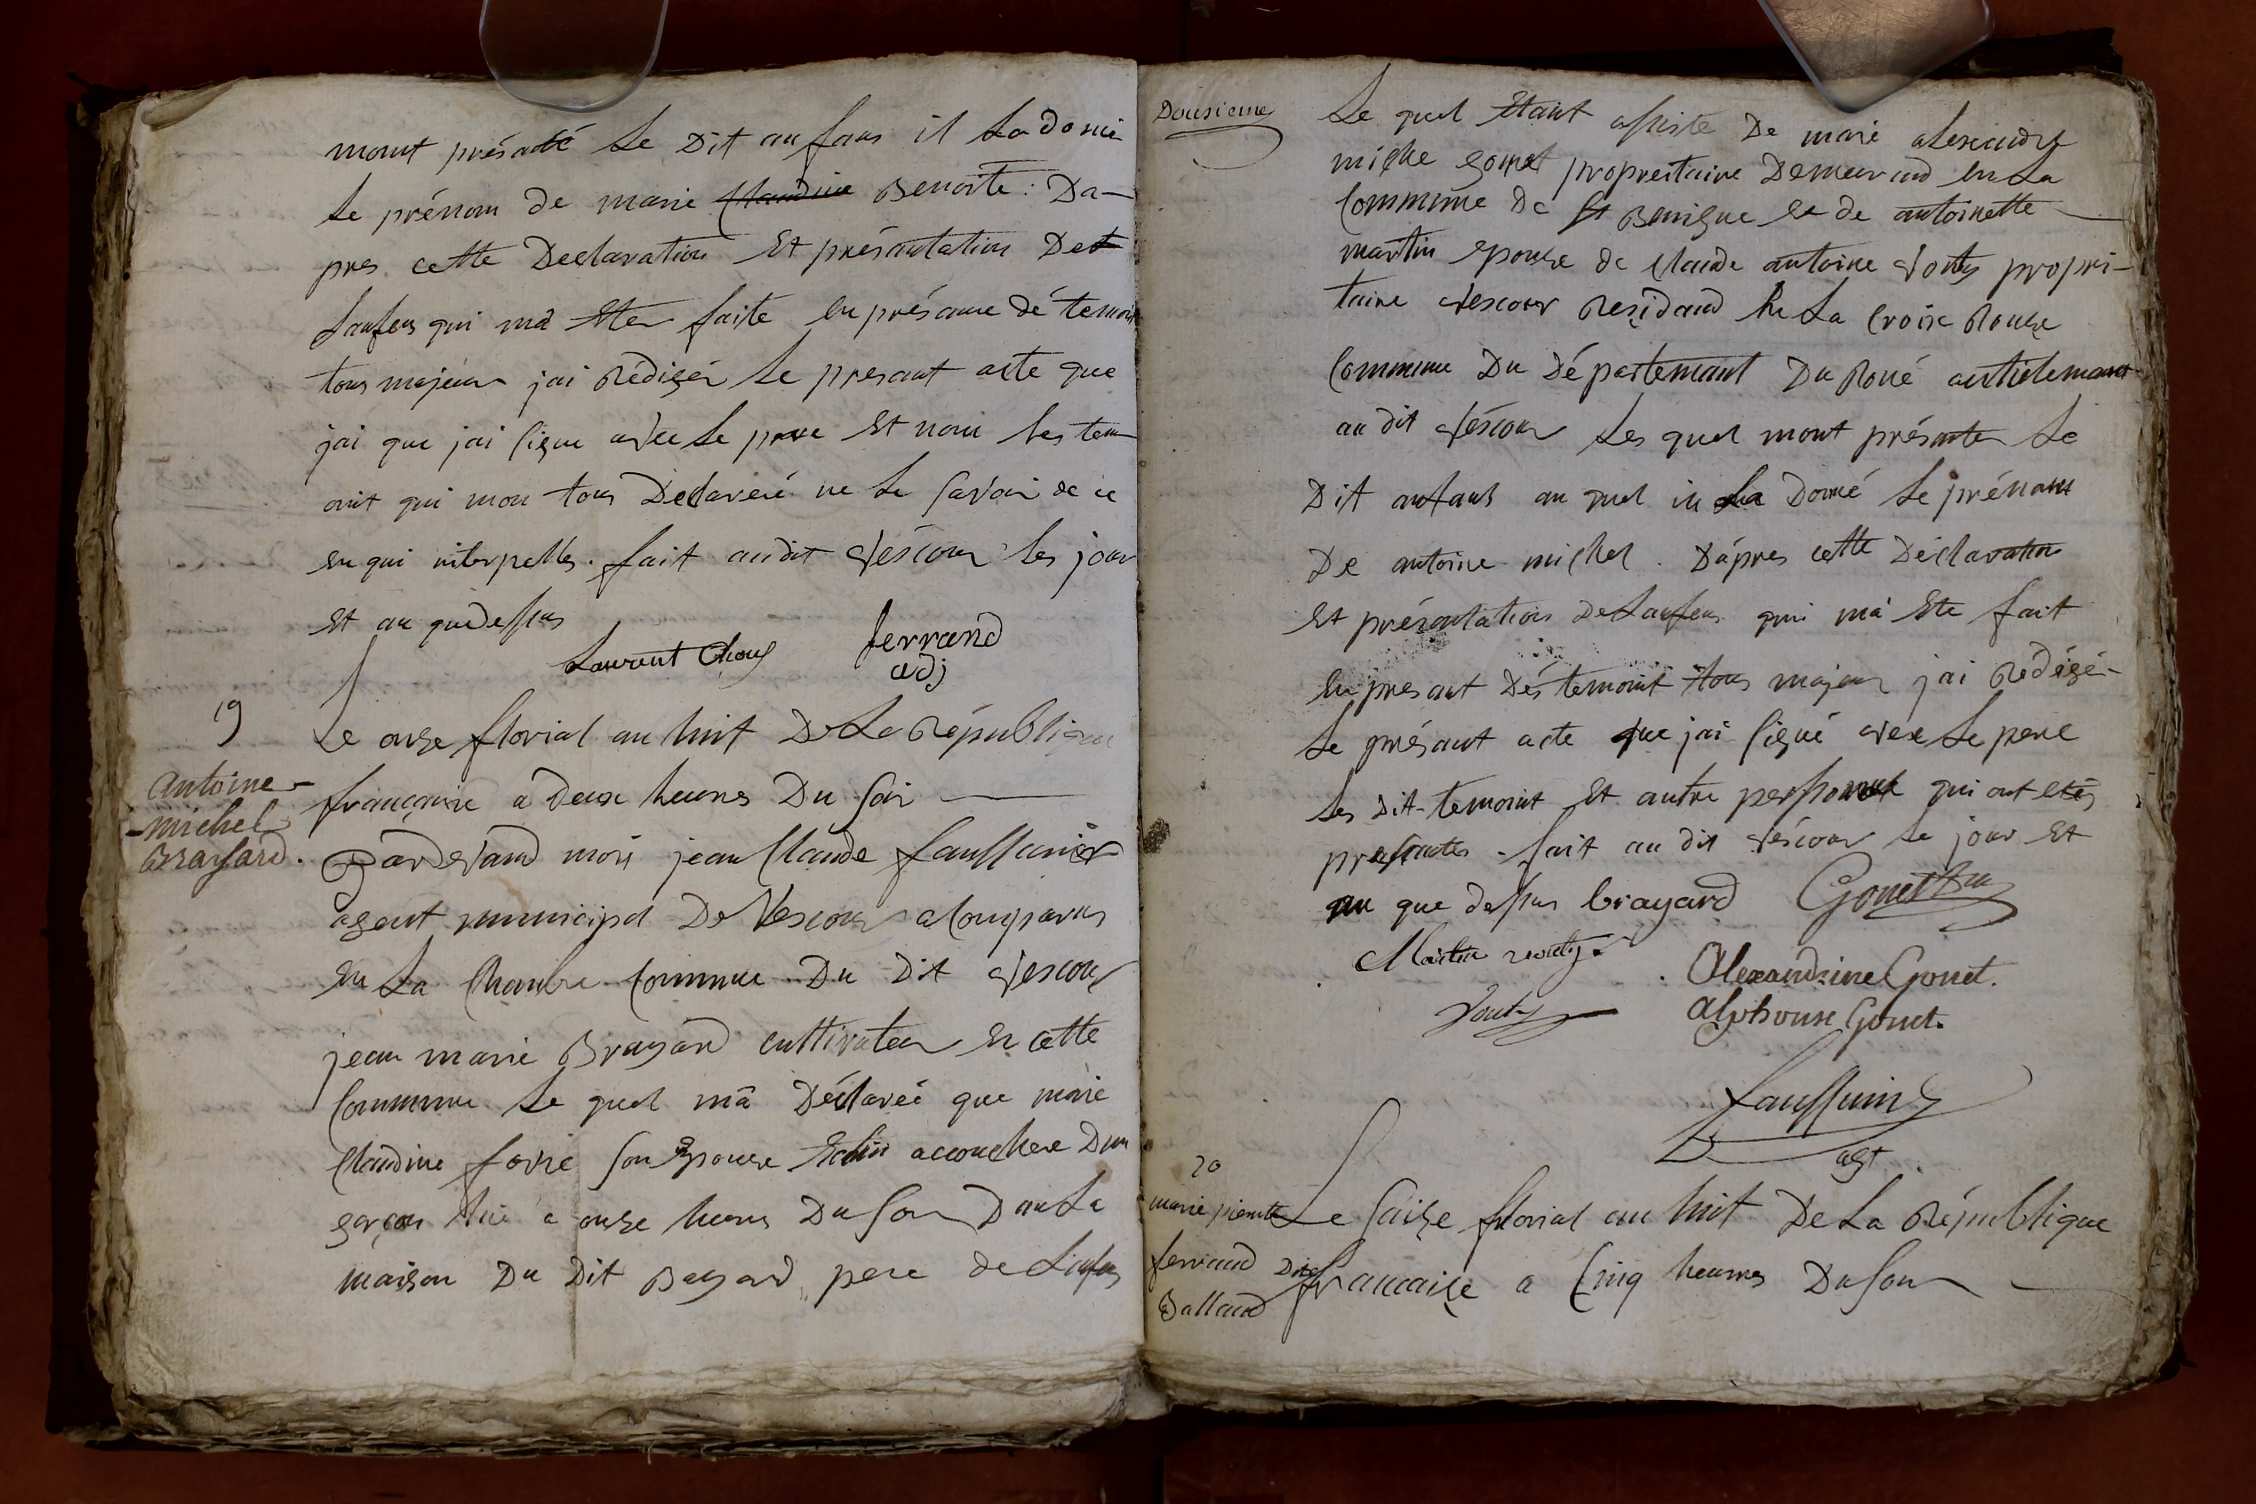 mont présanté Le Dit anfans il La donné
Le prénom de marie Claudine Benoite : Da-
pres cette Declaration Et présantation Det
Lanfens qui ma Eter faite En présance dé temoin
tous majeur jai Rédigér Le presant acte que
jai que jai signe avec Le pere Et nom les tem
oint qui mon tous Declareré ne Le savoir de ce
En qui interpelles. fait audit Vescour Les jour
Et an que dessus
Laurent Chou ferrand
adj
19
Le onze florial an huit De La République
antoine
michel
Brayard.
française a deux heures Du Soir
Pardevand moi jean Claude faussurier
agent municipal De Vescour a Comparus
En La Chambre Commune Du Dit Vescour
jean marie Brayard cultivateur En cette
Commune Le quel mâ Déclaréé que marie
Claudine favre son Epouze accouchere Dun
garcon hié a onze heures Du Soir Dans La
maison Du Dit Bayard pere de Lanfans
Dousieme
Le quel Etant assiste De marie alexendre
miche gonet proprietaire Demeurand En La
Commune De St Benigne Et de antoinette
martin Epouze de Claude antoine Vouty propri-
taire Vescour Residand En La Croix Rouze
Commune Du Département Du Roné
au dit Véscour Les quel mont présenter Le
Dit anfans au quel il La Donné Le prénom
De antoine michel. Dápres cette Déclaration
Et présantation De Lanfens qui má Ete fait
En presant Dés temoint tous majeur jai Rédigé
Le présant acte que jai signé avec Le pere
Les Dit temoint Et autre personnel qui ont etés
presantes. fait au dit Vescour Le jour Et
an que dessus brayard Gonet
Martin vouty.
Alexandrine Gonet.
Vouty
Alphonse Gonet.
faussurier
agt
20
marie pierrette
ferrand Dite
Balland
Le Saize florial an huit De La République
francaise a Cinq heures Du Soir